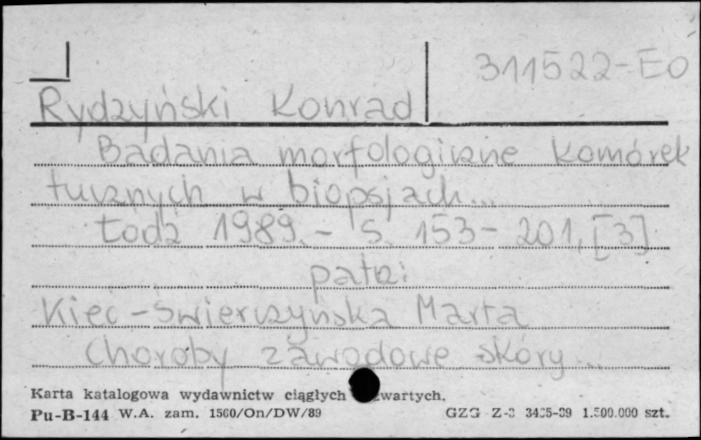 311522-EO
Rydzyński Konrad
Badania morfologiczne komórek
tucznych w biopsjach...
Łódź 1989. - S. 153-201, [3]
patrz:
Kieć-Świerczyńska Marta
Choroby zawodowe skóry...
Karta katalogowa wydawnictw ciągłych wartych.
Pu-B-144 W.A. zam. 1560/On/DW/89 GZG Z-3 1.500.000 szt.